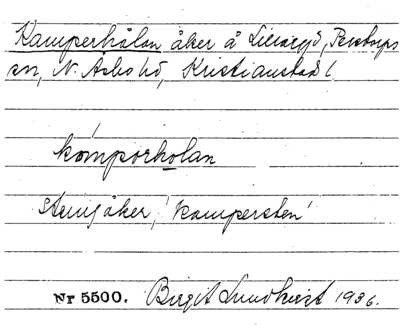 Kamperhålan åker å Lillaryd, Perstorps
sn, N. Åsbo hd, Kristianstad l
kámporholan
Stenig åker, 'kampersten'
Nr 5500. Birgit Lundkvist 1936.